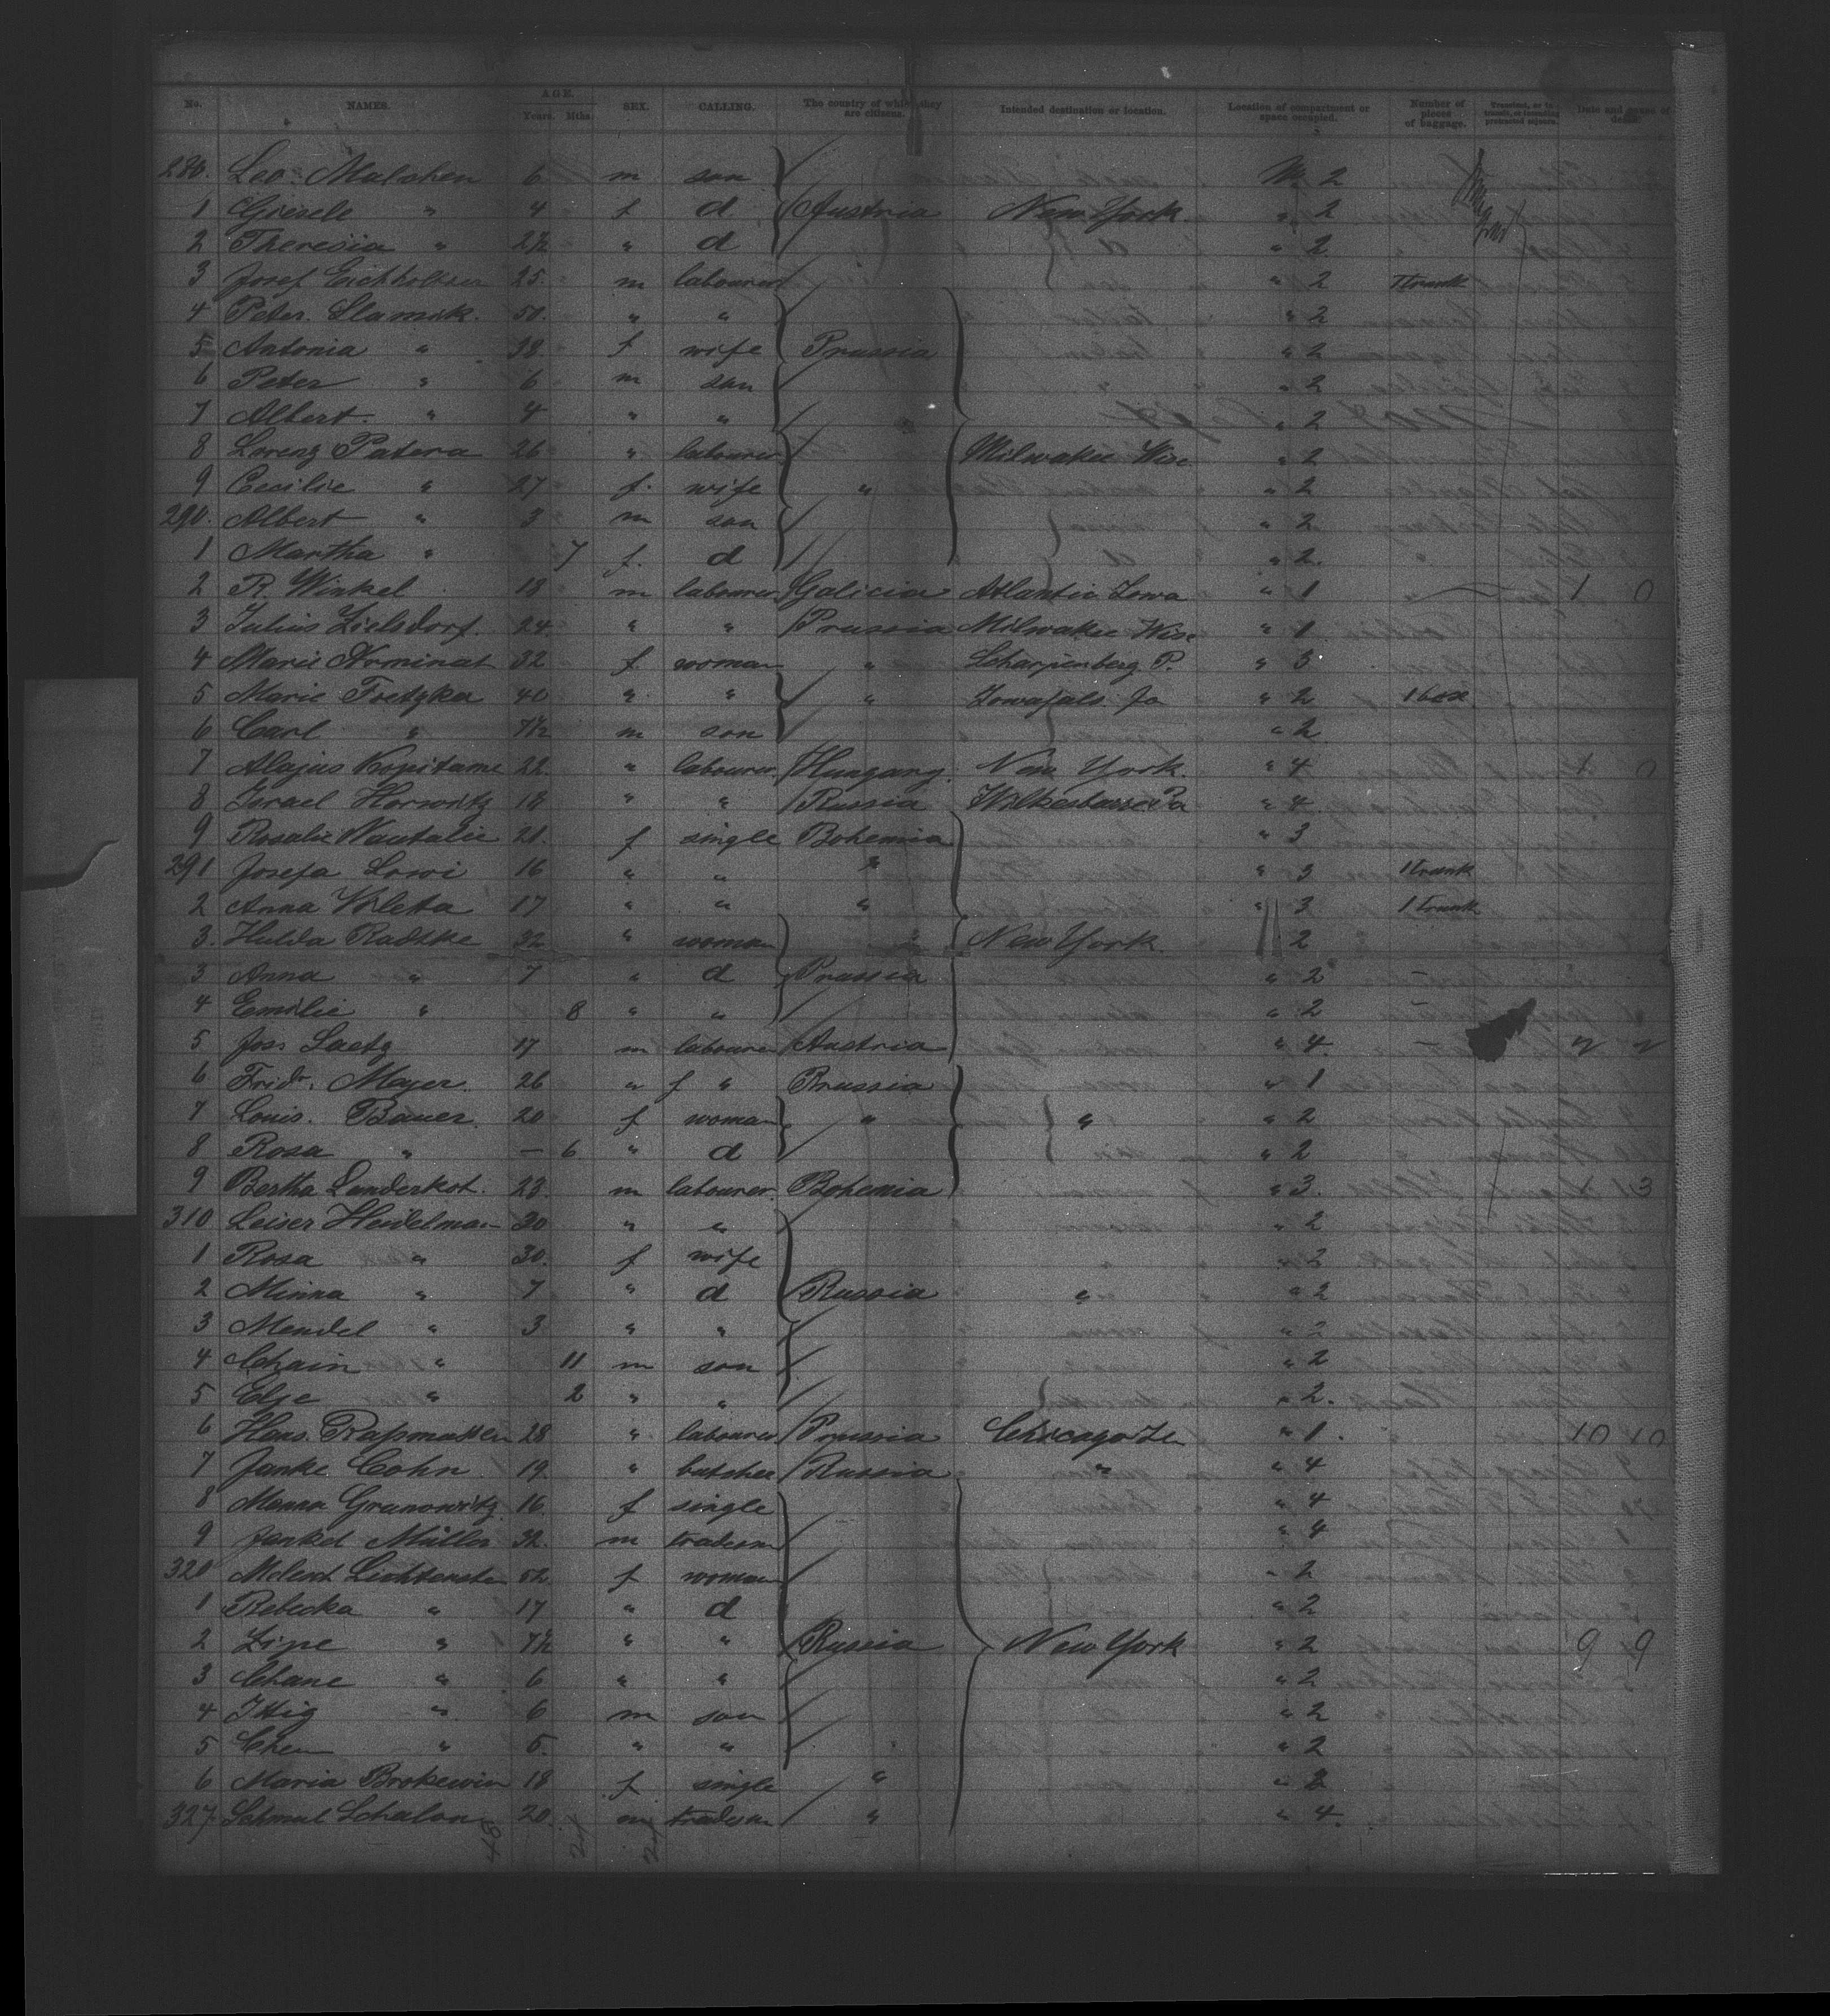 No. NAMES. AGE. Years. Mths. SEX. CALLING. The country of which they are citizens. Intended destination or location. Location of compartment or space occupied. Number of pieces of baggage. Date and cause of death.
280. Leo Malchen 6 m son 2
1 Gisele " 4 f d Austria New York " 2
2 Theresia " 2½ " d " 2
3 Josef Eichholzer 25 m labourer " 2 1 trunk
4 Peter Slamik 50 " " " 2
5 Antonia " 38 f wife Prussia " 2
6 Peter " 6 m son " 2
7 Albert " 4 " " " 2
8 Lorenz Patera 26 " labourer Milwakee Wisc " 2
9 Cecilie " 27 f wife " " 2
290. Albert " 3 m son " 2
1 Martha " 7 f d " 2
2 R. Winkel 18 m labourer Galicia Atlantic Iowa " 1 1 0
3 Julius Zielsdorf 24 " " Prussia Milwakee Wisc " 1
4 Marie Norminat 32 f woman " Scharpenberg P. " 3
5 Marie Fretzka 40 " " " Iowafals Ja " 2 1 box
6 Carl " 7½ m son " 2
7 Alajus Kopitame 22 " labourer Hungary New York " 4 1 0
8 Israel Horwitz 18 " " Russia Wilkesbarre Pa " 4
9 Rosalie Nautalie 21 f single Bohemia " 3
291 Josefa Lowi 16 " " " " 3 1 trunk
2 Anna Voleta 17 " " " " 3 1 trunk
3. Hulda Radtke 32 " woman New York 2
3 Anna " 7 " d Prussia " 2
4 Emilie " 8 " " " 2
5 Jos. Laetz 17 m labourer Austria " 4
6 Fridr. Mayer 26 " f " Prussia " 1
7 Louis. Bauer 20 f woman " " " 2
8 Rosa " — 6 " d " 2
9 Bertha Landerkot. 23 m labourer Bohemia " 3. 1 3
310 Leiser Heidelman 30 " " " 2
1 Rosa " 30 f wife " 2
2 Minna " 7 " d Russia " " 2
3 Mendel " 3 " " " 2
4 Chain " 11 m son " 2
5 Elje " 2 " " " 2.
6 Hans Raßmussen 28 " labourer Prussia Chicago Ill " 1. 10 10
7 Janke Cohn 19 " butcher Russia " " 4
8 Manna Granowitz 16 f single " 4
9 Jankel Müller 32 m tradesm " 4
320 Lichtenstein 52 f woman " 2
1 Rebecka " 17 " d " 2
2 Zipe " 7½ " " Russia New York " 2 9 9
3 Chane " 6 " " " 2
4 Itzig " 6 m son " 2
5 Chem " 5 " " " 2
6 Maria Brokewin 18 f single " " 2
327 Schmul Schalom 20 m tradesm " " 4.
48 24 24